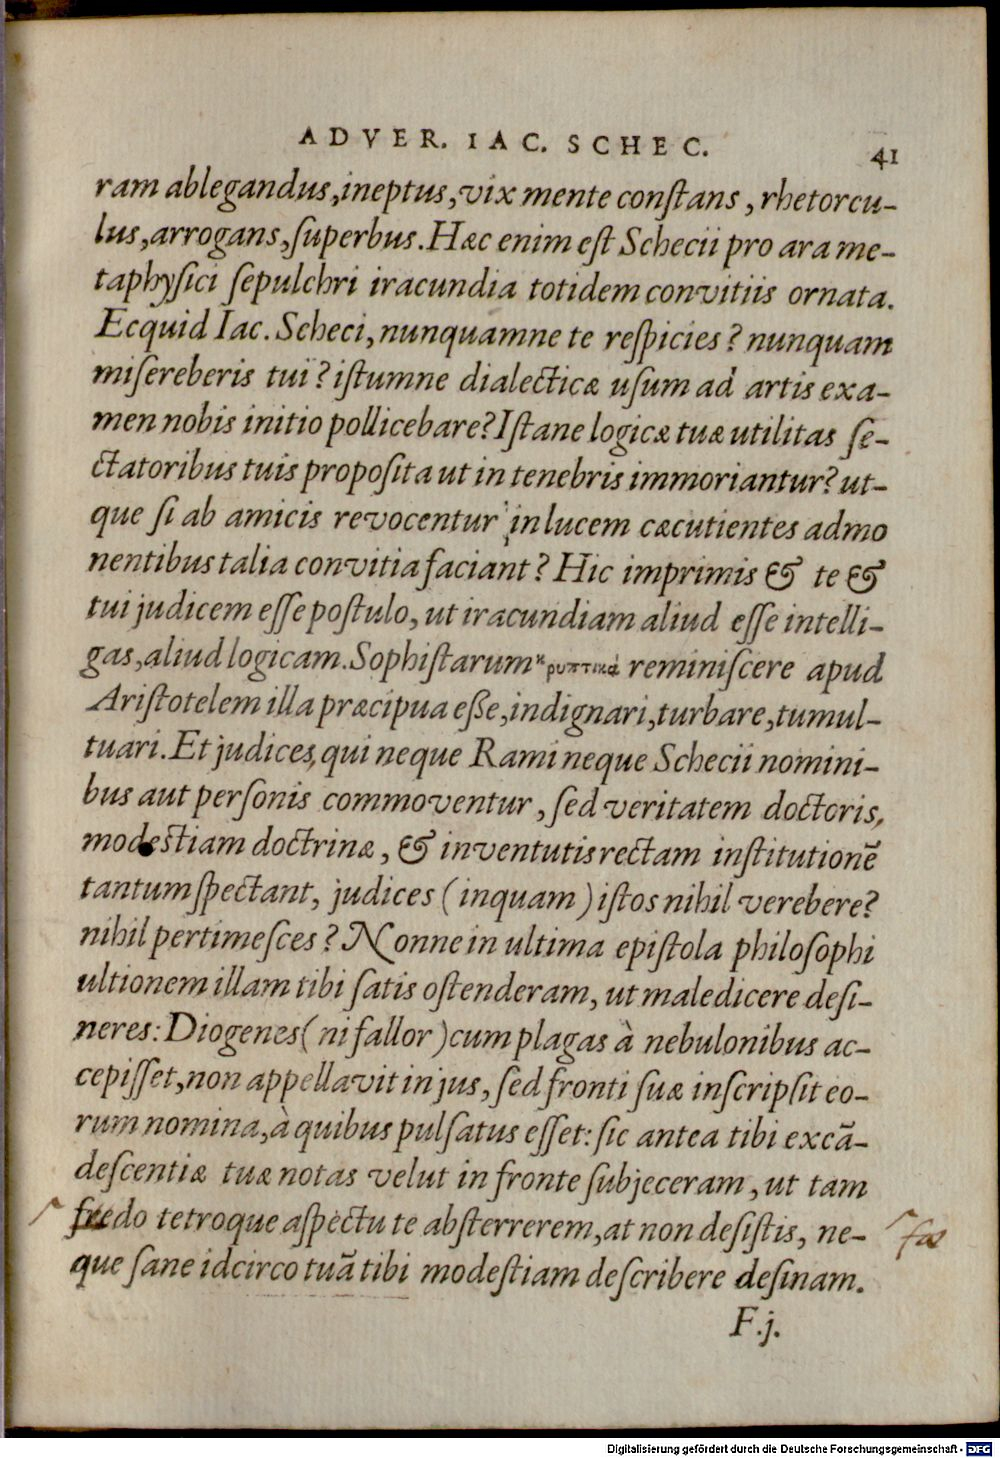 ADVER. IAC. SCHEC. 41
ram ablegandus, ineptus, vix mente conſtans, rhetorcu-
lus, arrogans, ſuperbus. Hæc enim eſt Schecii pro ara me-
taphyſici ſepulchri iracundia totidem convitiis ornata.
Ecquid Iac. Scheci, nunquamne te reſpicies? nunquam
miſereberis tui? iſtumne dialecticæ uſum ad artis exa-
men nobis initio pollicebare? Iſtane logicæ tuæ utilitas ſe-
ctatoribus tuis propoſita ut in tenebris immoriantur? ut-
que ſi ab amicis revocentur in lucem cæcutientes admo
nentibus talia convitia faciant? Hic imprimis & te &
tui judicem eſſe poſtulo, ut iracundiam aliud eſſe intelli-
gas, aliud logicam. Sophiſtarum κρυπτικὰ reminiſcere apud
Ariſtotelem illa præcipua eſſe, indignari, turbare, tumul-
tuari. Et judices, qui neque Rami neque Schecii nomini-
bus aut perſonis commoventur, ſed veritatem doctoris,
modeſtiam doctrinæ, & inventutis rectam inſtitutionē
tantum ſpectant, judices (inquam) iſtos nihil verebere?
nihil pertimeſces? Nonne in ultima epiſtola philoſophi
ultionem illam tibi ſatis oſtenderam, ut maledicere deſi-
neres: Diogenes (ni fallor) cum plagas à nebulonibus ac-
cepiſſet, non appellavit in jus, ſed fronti ſuæ inſcripſit eo-
rum nomina, à quibus pulſatus eſſet: ſic antea tibi excā-
deſcentiæ tuæ notas velut in fronte ſubjeceram, ut tam
fœdo tetroque aſpectu te abſterrerem, at non deſiſtis, ne-
que ſane idcirco tuā tibi modeſtiam deſcribere deſinam.
F.j.